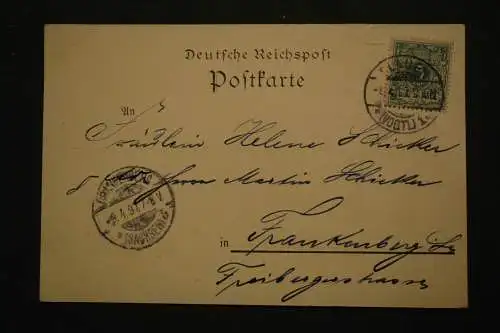 Deutsche Reichspost
Postkarte
An
Fräulein Helene Schicker
Herrn Martin Schicker
in Frankenberg
Freibergerstrasse
(VOGTL)
(SACHSEN)